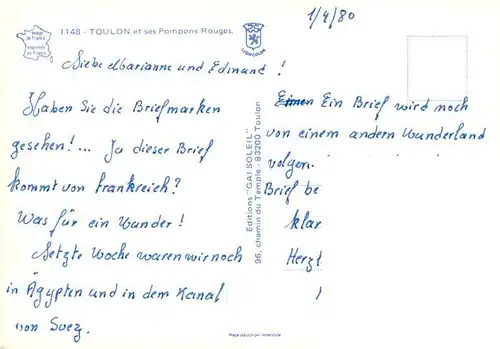 1/4/80
1148 - TOULON et ses Pompons Rouges.
Image de France
Imprimée en France
Liebe Marianne und Edmund !
Haben Sie die Briefmarken
gesehen! ... Ja dieser Brief
kommt von Frankreich?
Was für ein Wunder!
Letzte Woche waren wir noch
in Ägypten und in dem Kanal
von Suez.
Editions "GAI SOLEIL"
96, chemin du Temple - 83200 Toulon
Einen Ein Brief wird noch
von einem andern Wunderland
volgen.
Brief be
klar
Herzl
Reproduction interdite